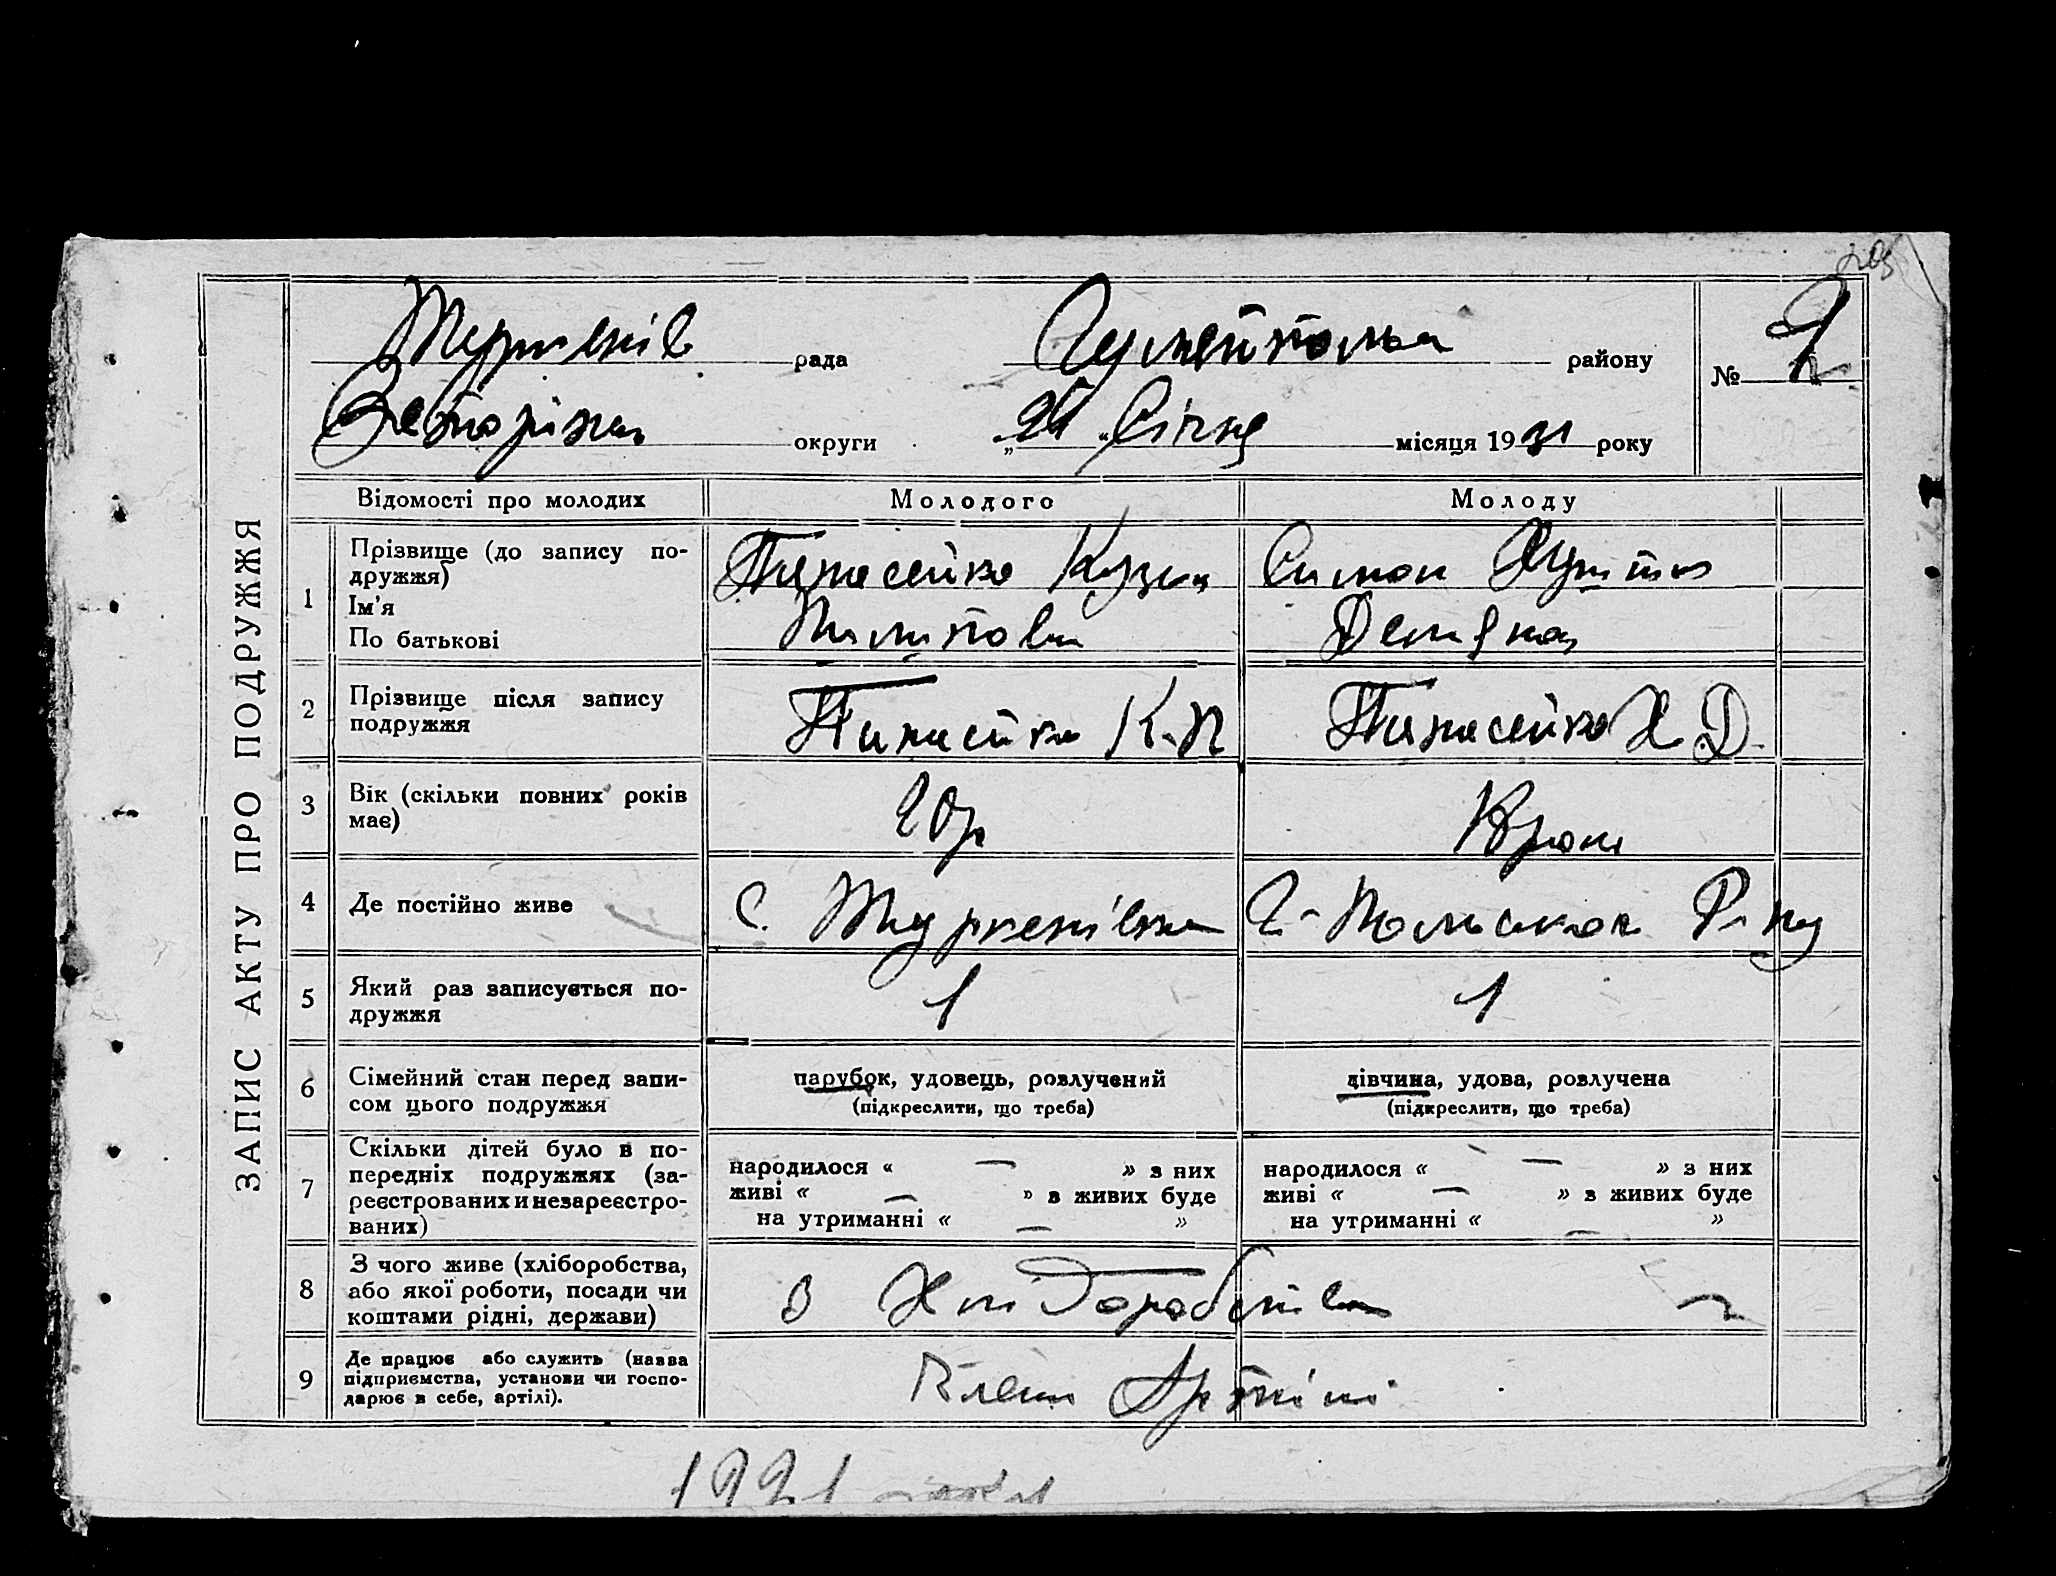 рада району №
Запоріжжя округи „ “ Січня місяця 1931 року
ЗАПИС АКТУ ПРО ПОДРУЖЖЯ
Відомості про молодих Молодого Молоду
1 Прізвище (до запису по-
дружжя)
Ім'я
По батькові
Панасейко Кузьма
Пилипович
Симон
Демидна
2 Прізвище після запису
подружжя
Панасейко К. П
Панасейко Х Д.
3 Вік (скільки повних років
має)
20р
роки
4 Де постійно живе
с. Туркенівка
5 Який раз записується по-
дружжя
1 1
6 Сімейний стан перед запи-
сом цього подружжя
парубок, удовець, розлучений
(підкреслити, що треба)
дівчина, удова, розлучена
(підкреслити, що треба)
7 Скільки дітей було в по-
передніх подружжях (за-
реєстрованих и незареєстро-
ваних)
народилося « — » з них
живі « — » з живих буде
на утриманні « — »
народилося « — » з них
живі « — » з живих буде
на утриманні « — »
8 З чого живе (хліборобства,
або якої роботи, посади чи
коштами рідні, держави)
з Хліборобства
9 Де працює або служить (назва
підприємства, установи чи госпо-
дарює в себе, артілі).
Член Артілі